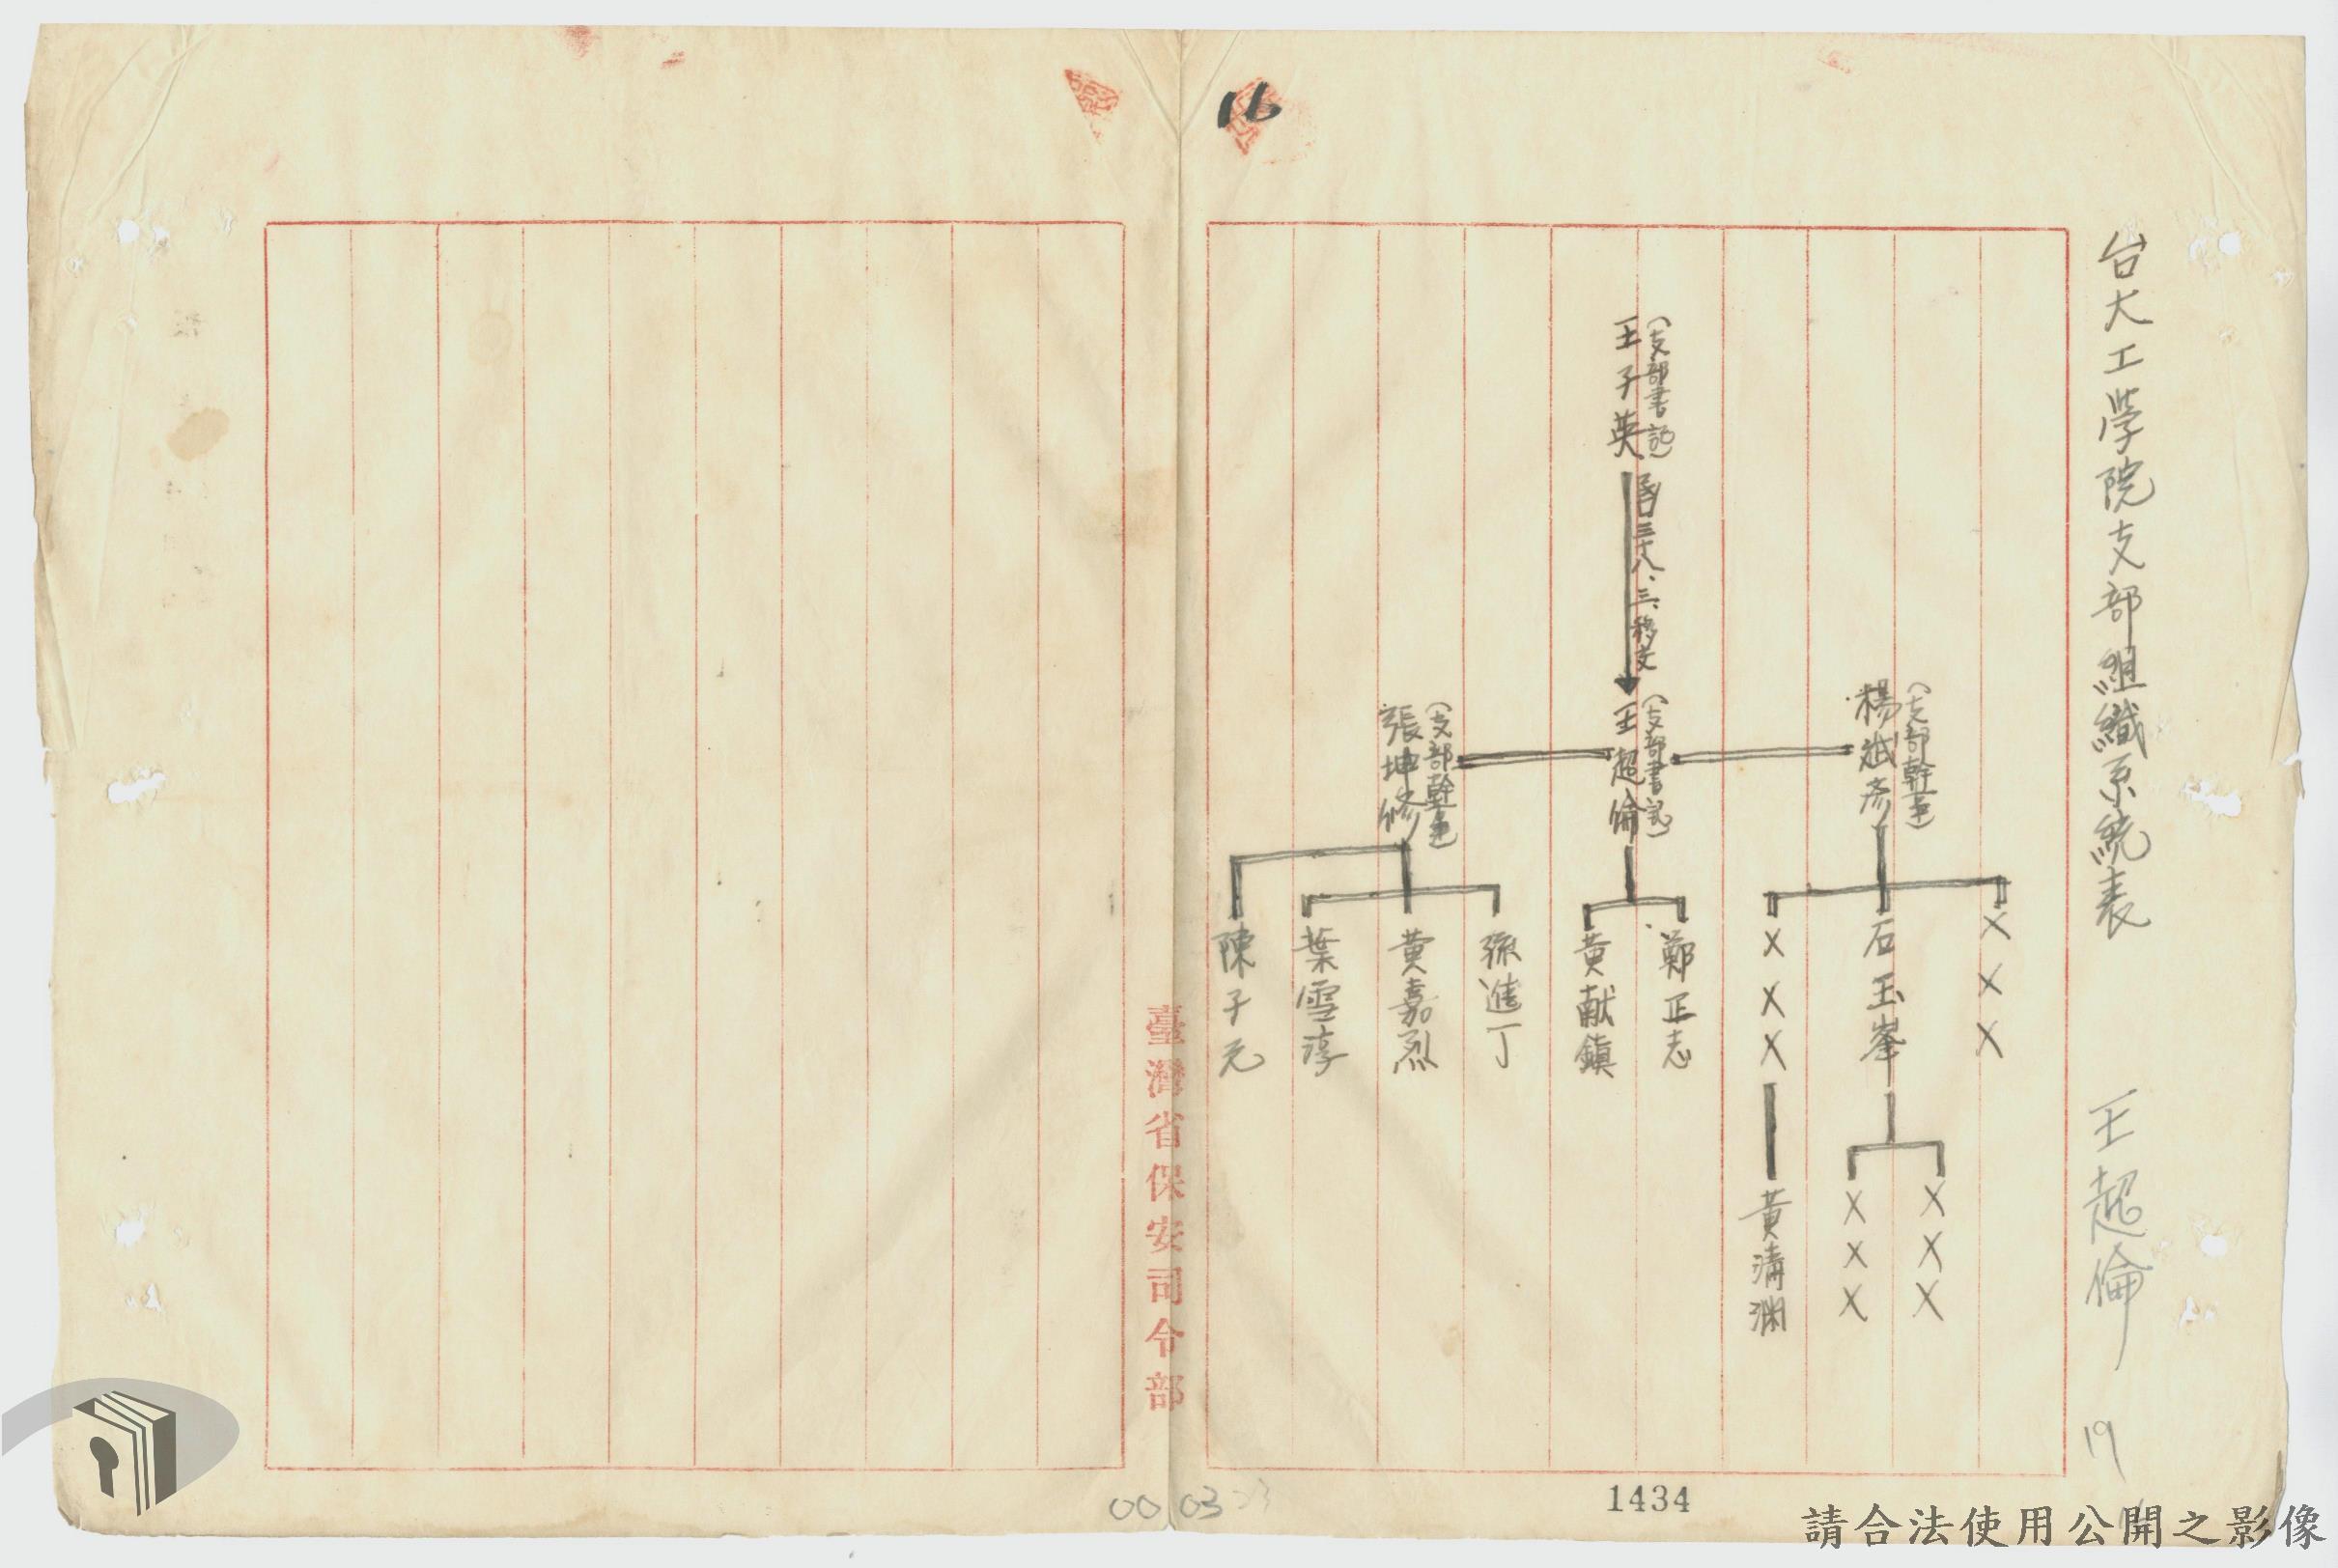 16
台大工學院支部組織系統表　王超倫
19
(支部書記)
王子英
三十八、三、移交
(支部書記)
王超倫
(支部幹事)
楊斌彥
(支部幹事)
張坤修
×××
石玉峯
×××
鄭正志
黃献鎮
孫進丁
黃嘉烈
葉雪淳
陳子元
×××
×××
黃清渊
臺灣省保安司令部
00 03
1434
請合法使用公開之影像